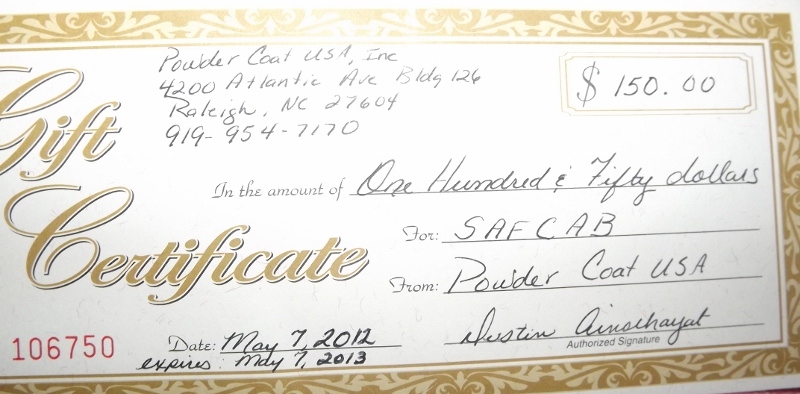 Powder Coat USA, Inc
4200 Atlantic Ave Bldg 126
Raleigh, NC 27604
919-954-7170
$ 150.00
Gift
Certificate
In the amount of One Hundred & Fifty dollars
For: SAFCAB
From: Powder Coat USA
106750
Date: May 7, 2012
expires: May 7, 2013
Dustin
Authorized Signature